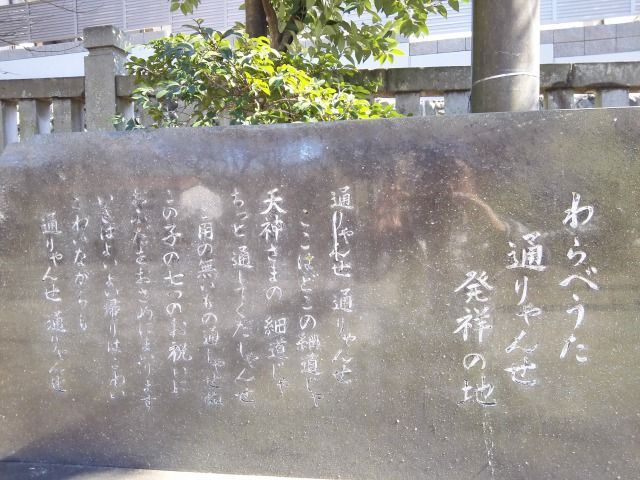 わらべうた
通りゃんせ
発祥の地
通りゃんせ 通りゃんせ
ここはどこの細道じゃ
天神さまの 細道じゃ
ちっと 通してくだしゃんせ
御用の無いもの通しゃせぬ
この子の七つのお祝いに
おふだをおさめにまいります
いきはよいよい帰りはこわい
こわいながらも
通りゃんせ 通りゃんせ